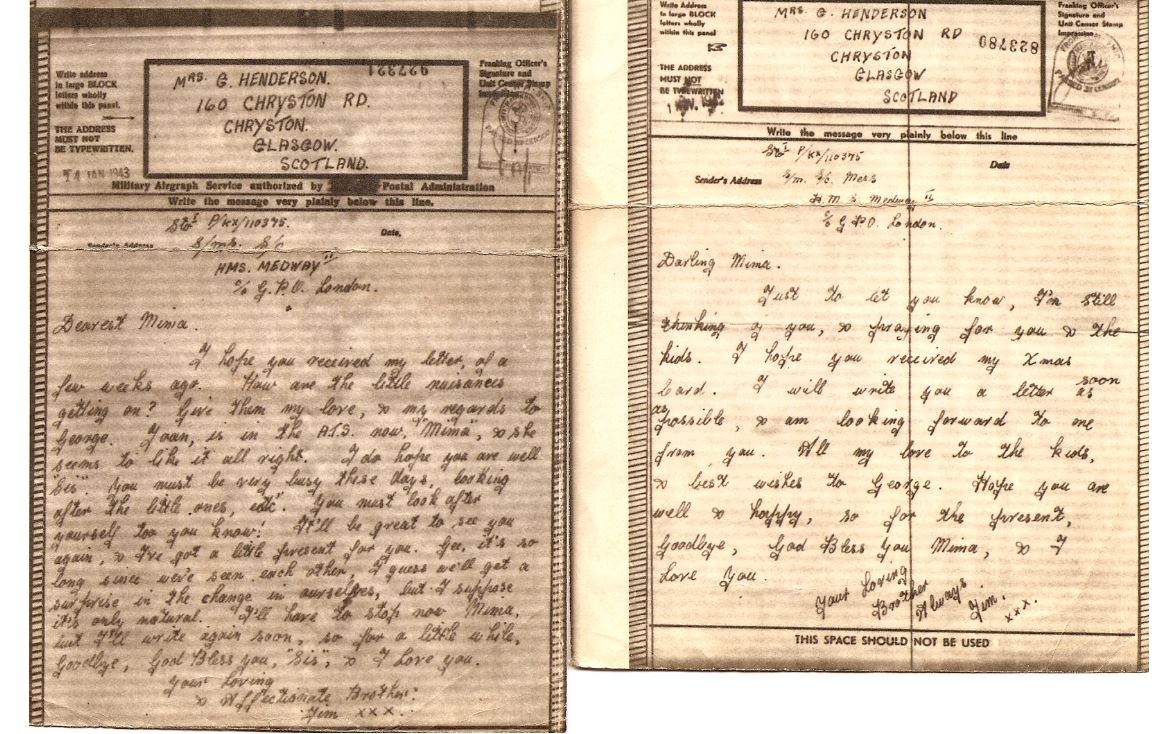 Write address
in large BLOCK
letters wholly
within this panel.
THE ADDRESS
MUST NOT
BE TYPEWRITTEN.
14 JAN 1943
927321
MRS. G HENDERSON.
160 CHRYSTON RD.
CHRYSTON.
GLASGOW.
SCOTLAND.
Franking Officer's
Signature and
Unit Censor Stamp
Military Airgraph Service authorized by Postal Administration
Write the message very plainly below this line.
P/KX/110375.
Sender's Address
Date,
HMS. MEDWAY II
c/o G.P.O. London.
Dearest Mima.
I hope you received my letter, of a
few weeks ago. How are the little nuisances
getting on? Give them my love, & my regards to
George. Joan, is in the A.T.S. now, "Mima", & she
seems to like it all right. I do hope you are well
"Sis". You must be very busy these days, looking
after the little ones, etc. You must look after
yourself too you know! It'll be great to see you
again, & I've got a little present for you. Gee, it's so
long since we've seen each other, I guess we'll get a
surprise in the change in ourselves, but I suppose
it's only natural. I'll have to stop now Mima,
but I'll write again soon, so for a little while,
Goodbye, God Bless you, "Sis", & I love you.
Your Loving
& Affectionate Brother.
Jim xxx.
Write Address
in large BLOCK
letters wholly
within this panel
THE ADDRESS
MUST NOT
BE TYPEWRITTEN
MRS. G. HENDERSON
160 CHRYSTON RD
CHRYSTON
GLASGOW
SCOTLAND
823780
Franking Officer's
Signature and
Unit Censor Stamp
Impression.
Write the message very plainly below this line
P/KX/110375
Date
Sender's Address S/m. Mess
H.M.S. Medway II
c/o G.P.O. London.
Darling Mima.
Just to let you know, I'm still
thinking of you, & praying for you & the
kids. I hope you received my Xmas
Card. I will write you a letter as soon
as
possible, & am looking forward to one
from you. All my love to the kids,
& best wishes to George. Hope you are
well & happy, so for the present,
Goodbye, God Bless You Mima, & I
Love You.
Your Loving
Brother Always
Jim.
xxx.
THIS SPACE SHOULD NOT BE USED